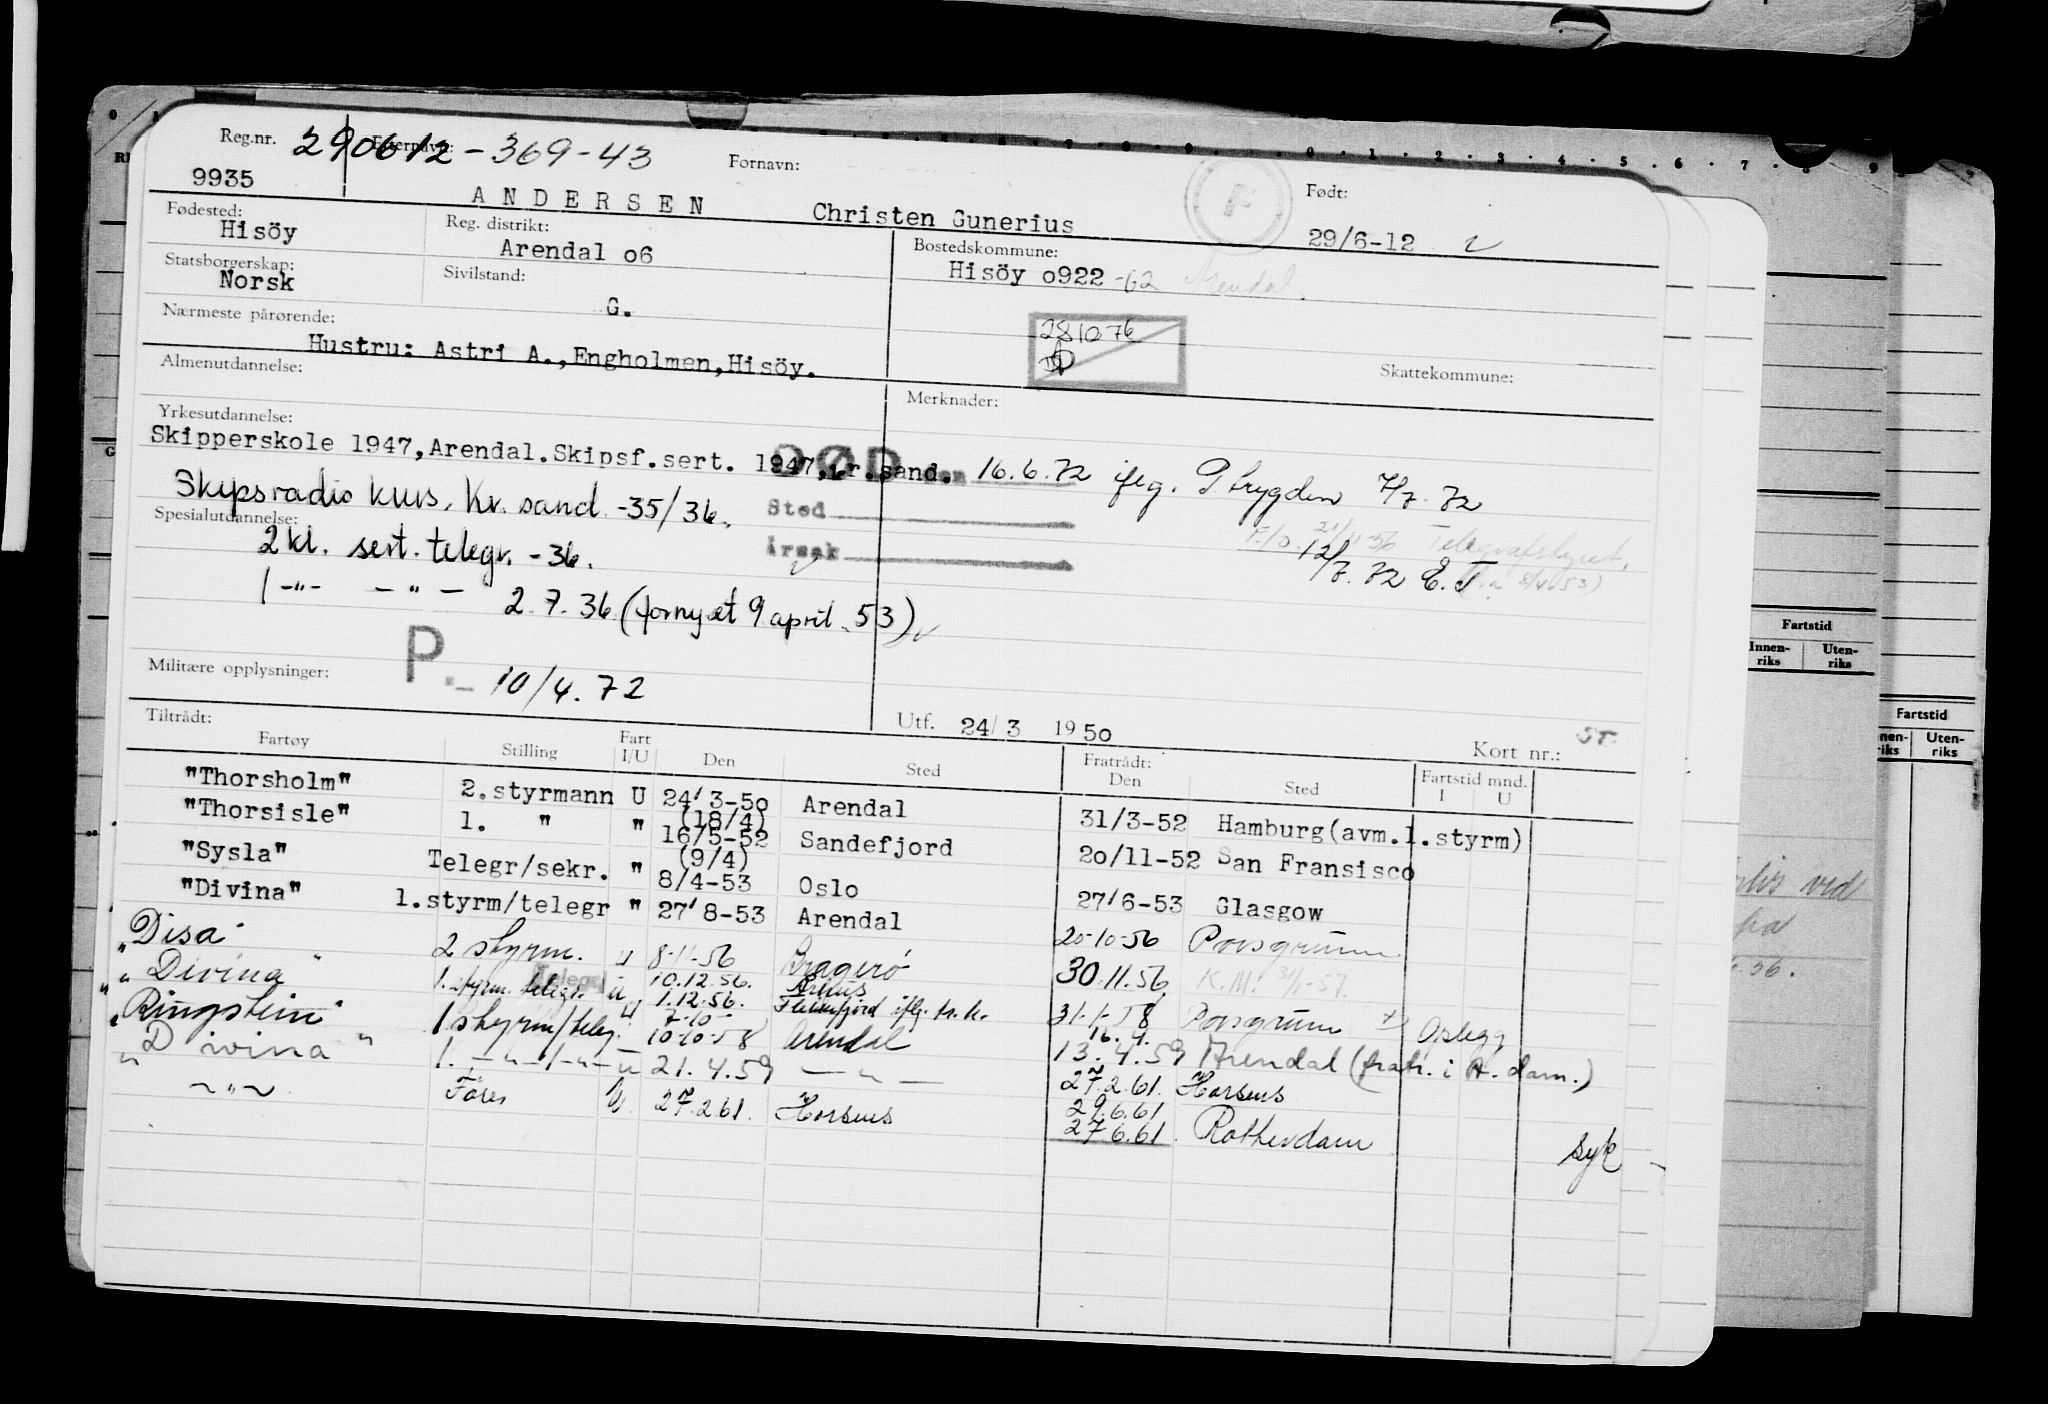 Reg.nr. 290612-369-43 Etternavn: Fornavn: Født:
9935 ANDERSEN Christen Gunerius F 29/6-12
Fødested: Hisöy Reg. distrikt: Arendal o6 Bostedskommune: Hisöy o922 -62 Arendal
Statsborgerskap: Norsk Sivilstand: G.
Nærmeste pårørende: 281076
Hustru: Astri A.,Engholmen,Hisöy.
Almenutdannelse: Skattekommune:
Merknader:
Yrkesutdannelse:
Skipperskole 1947,Arendal.Skipsf.sert. 1947,kr.sand. DØD den 16.6.72 iflg. P trygden 7/7.72
Skipsradio kurs. Kr. sand -35/36. Sted
Spesialutdannelse: Årsak 12/7.72 E.T. Telegrafstyret,
2 kl. sert. telegr. -36.
1 -"- - " - 2.7.36 (fornyet 9 april 53)
Militære opplysninger: P.- 10/4.72
Tiltrådt: Utf. 24/3 1950 Kort nr.:
Fartøy Stilling Fart I/U Den Sted Fratrådt: Den Sted Fartstid mnd. I U
"Thorsholm" 2.styrmann U 24/3-50 Arendal 31/3-52 Hamburg(avm.1.styrm)
"Thorsisle" 1. " " (18/4) 16/5-52 Sandefjord 20/11-52 San Fransisco
"Sysla" Telegr/sekr. " (9/4) 8/4-53 Oslo 27/6-53 Glasgow
"Divina" 1.styrm/telegr " 27/8-53 Arendal 20-10-56 Porsgrunn
"Disa" 2 styrm. u 8-11-56 Kragerø 30.11.56 K.M. 31/1-57.
"Divina" 1. styrm. telegr. u 10.12.56. Århus 1.12.56. Flekkefjord iflg. 31-1-58 Porsgrunn Opplegg
"Ringstein" 1 styrm/teleg. u 7-10- 10-10-58 Arendal 16.4. 13.4.59 Arendal (fratr. i A.dam.)
"Divina" 1. -"-/-"- u 21.4.59 -"- 27.2.61. Horsens
-"- Fører U 27.2.61. Horsens 29.6.61 27.6.61. Rotterdam Syk
Fartstid
Innen-riks Uten-riks
Fartstid
Uten-riks